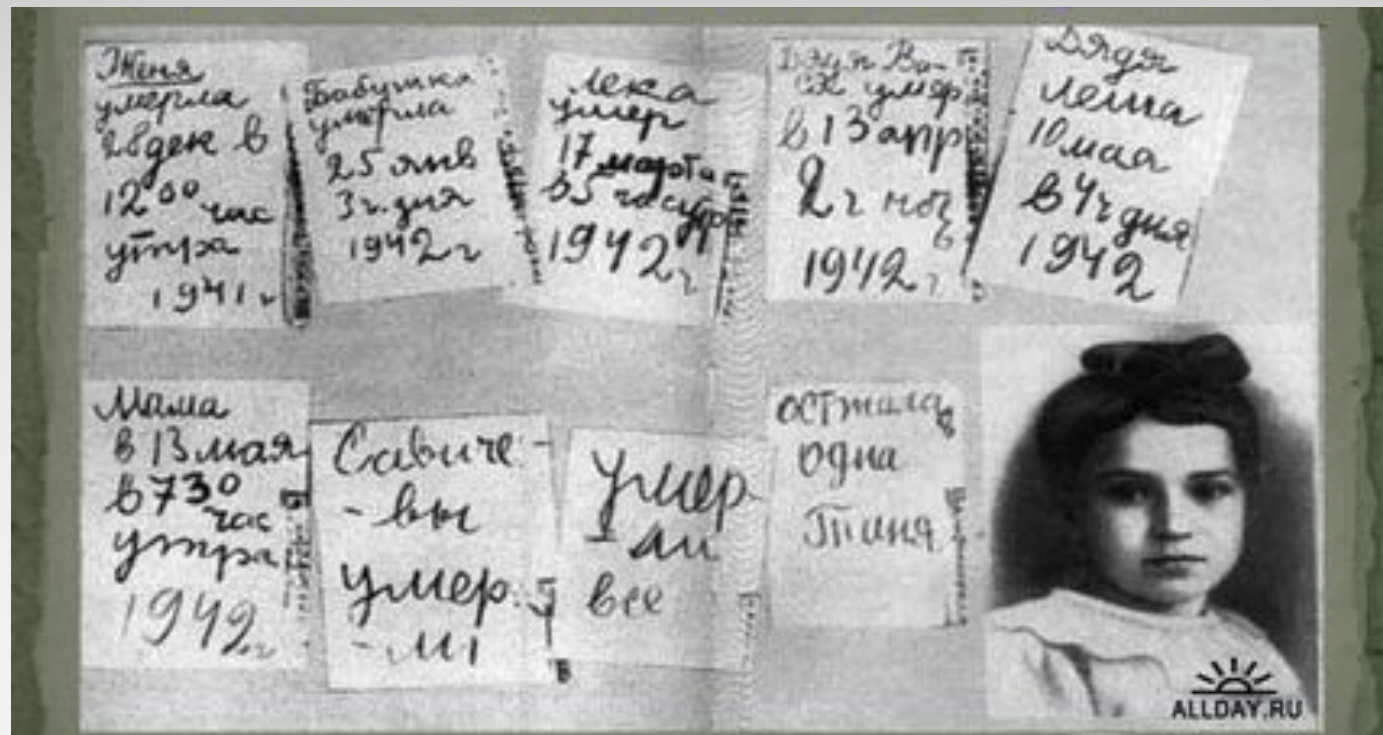 Женя
умерла
28 дек в
12 00 час
утра
1941 г
Бабушка
умерла
25 янв
3 ч. дня
1942 г
Лека
умер
17 марта
в 5 час утр
1942 г
Дядя Ва-
ся умер
в 13 апр
2 ч ноч
1942 г
Дядя
Леша
10 мая
в 4 ч дня
1942
Мама
в 13 мая
в 7 30
час
утра
1942 г
Савиче-
-вы
умер-
-ли
Умер
-ли
все
осталась
одна
Таня
ALLDAY.RU